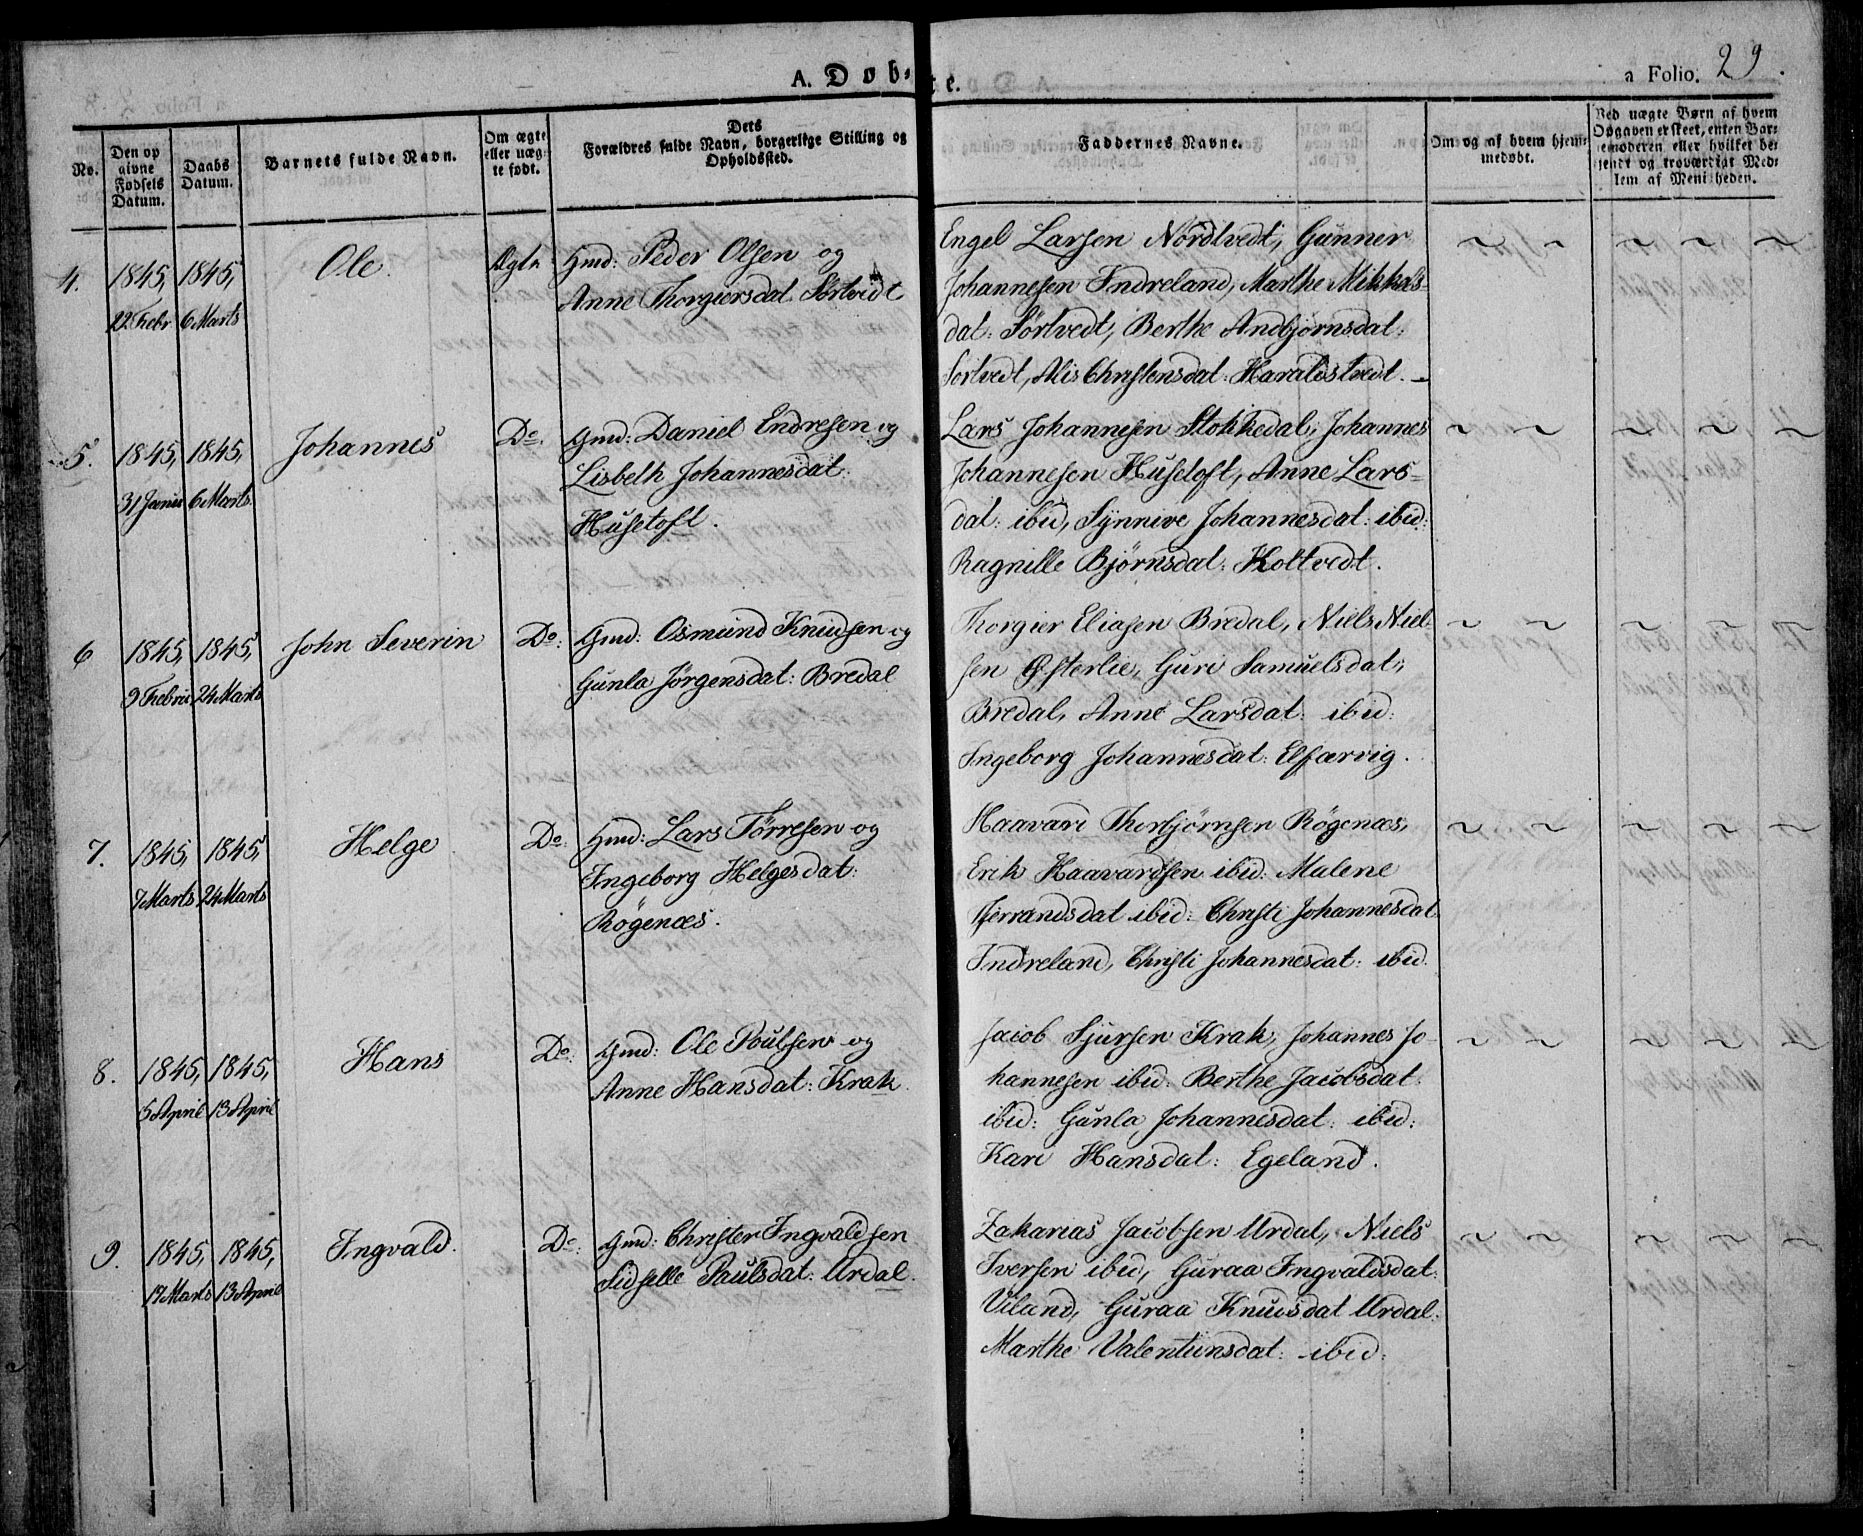 A. Døb-
te.
a Folio. 29.
No.
Den op
givne
Fødsels
Datum.
Daabs
Datum.
Barnets fulde Navn.
Om ægte
eller uæg-
te født.
Dets
Forældres fulde Navn, borgerlige Stilling og
Opholdssted.
Faddernes Navne.
Om og af hvem hjem-
medøbt.
Ved uægte Børn af hvem
Opgaven er skeet, enten Bar-
nemoderen eller hvilket be-
kjendt og troværdigt Med-
lem af Menigheden.
4.
1845,
22 Febr
1845,
6 Marts
Ole.
Ægte
Gmd: Peder Olsen og
Anne Thorgiersdat. Sørtvedt
Engel Larsen Nordtvedt, Gunner
Johannesen Indreland, Marthe Mikkels-
dat: Sørtvedt, Berthe Andbjørnsdat:
Sørtvedt, Alis Christensdat: Haraldstvedt.
5.
1845,
31 Janu
1845,
6 Marts.
Johannes
Do.
Gmd: Daniel Endresen og
Lisbeth Johannesdat:
Husetoft.
Lars Johannesen Stokkedal, Johannes
Johannesen Husetoft, Anne Lars-
dat: ibid, Synnive Johannesdat: ibid:
Ragnille Bjørnsdat: Holtvedt.
6
1845,
9 Febru
1845,
24 Marts
John Severin
Do:
Gmd: Osmund Knudsen og
Gunla Jørgensdat: Bredal
Thorgier Eliasen Bredal, Niels Niel-
sen Østerlie, Guri Samuelsdat:
Bredal, Anne Larsdat: ibid:
Ingeborg Johannesdat: Elfærvig.
7.
1845,
7 Marts
1845,
24 Marts
Helge
Do:
Gmd: Lars Tørresen og
Ingeborg Helgesdat:
Røgenæs.
Haavard Thorbjørnsen Røgenæs,
Erik Haavardsen ibid: Malene
Tjerrandsdat ibid: Christi Johannesdat
Indreland, Christi Johannesdat: ibid.
8.
1845,
5 April
1845,
13 April
Hans
Do:
Gmd: Ole Poulsen og
Anne Hansdat: Krak.
Jacob Sjursen Krak, Johannes Jo-
hannesen ibid: Berthe Jacobsdat:
ibid: Gunla Johannesdat: ibid:
Kari Hansdat: Egeland.
9.
1845,
17 Marts
1845,
13 April
Ingvald.
Do:
Gmd: Christer Ingvaldsen
Sidselle Paulsdat: Urdal.
Zakarias Jacobsen Urdal, Niels
Iversen ibid, Guraa Ingvaldsdat:
Viland, Guraa Knudsdat Urdal.
Marthe Valentinsdat: ibid: